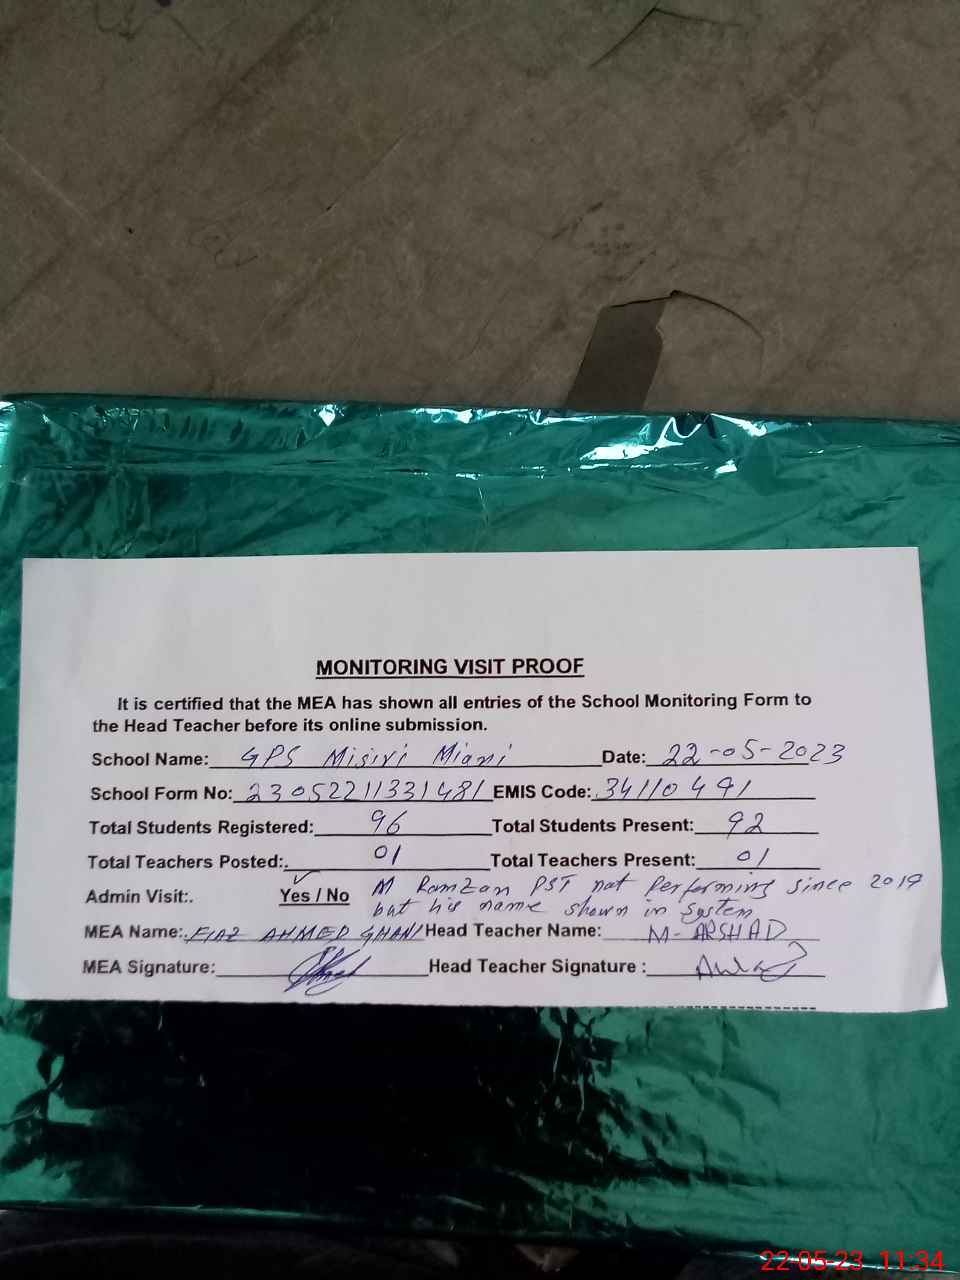 MONITORING VISIT PROOF
It is certified that the MEA has shown all entries of the School Monitoring Form to
the Head Teacher before its online submission.
School Name: GPS Misivi Miani Date: 22-05-2023
School Form No: 23052211331481 EMIS Code: 34110491
Total Students Registered: 96 Total Students Present: 92
Total Teachers Posted:. 01 Total Teachers Present: 01
Admin Visit:. Yes / No M Ramzan PST not Performing since 2019
but his name shown in system
MEA Name:. FIAZ AHMED GHANI Head Teacher Name: M-ARSHAD
MEA Signature: Head Teacher Signature :
22-05-23 11:34